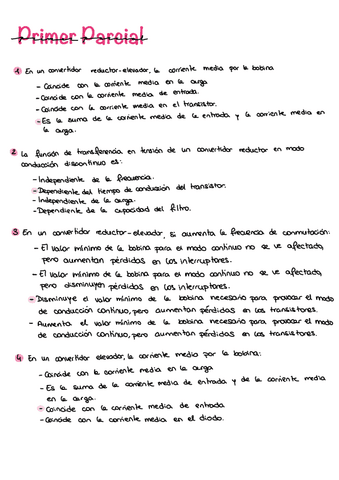 Primer Parcial
1 En un convertidor reductor-elevador, la corriente media por la bobina
- Coincide con la corriente media en la carga
- Coincide con la corriente media de entrada.
- Coincide con la corriente media en el transistor.
- Es la suma de la corriente media de la entrada y la corriente media en
la carga.
2 La función de transferencia en tensión de un convertidor reductor en modo
conducción discontinuo es:
- Independiente de la frecuencia.
- Dependiente del tiempo de conducción del transistor.
- Independiente de la carga.
- Dependiente de la capacidad del filtro.
3 En un convertidor reductor-elevador, si aumenta la frecuencia de conmutación:
- El valor mínimo de la bobina para el modo continuo no se ve afectado,
pero aumentan pérdidas en los interruptores.
- El valor mínimo de la bobina para el modo continuo no se ve afectado,
pero disminuyen pérdidas en los interruptores.
- Disminuye el valor mínimo de la bobina necesario para provocar el modo
de conducción continuo, pero aumentan pérdidas en los transistores.
- Aumenta el valor mínimo de la bobina necesario para provocar el modo
de conducción continuo, pero aumentan pérdidas en los transistores.
4 En un convertidor elevador, la corriente media por la bobina:
- Coincide con la corriente media en la carga
- Es la suma de la corriente media de entrada y de la corriente media
en la carga.
- Coincide con la corriente media de entrada
- Coincide con la corriente media en el diodo.